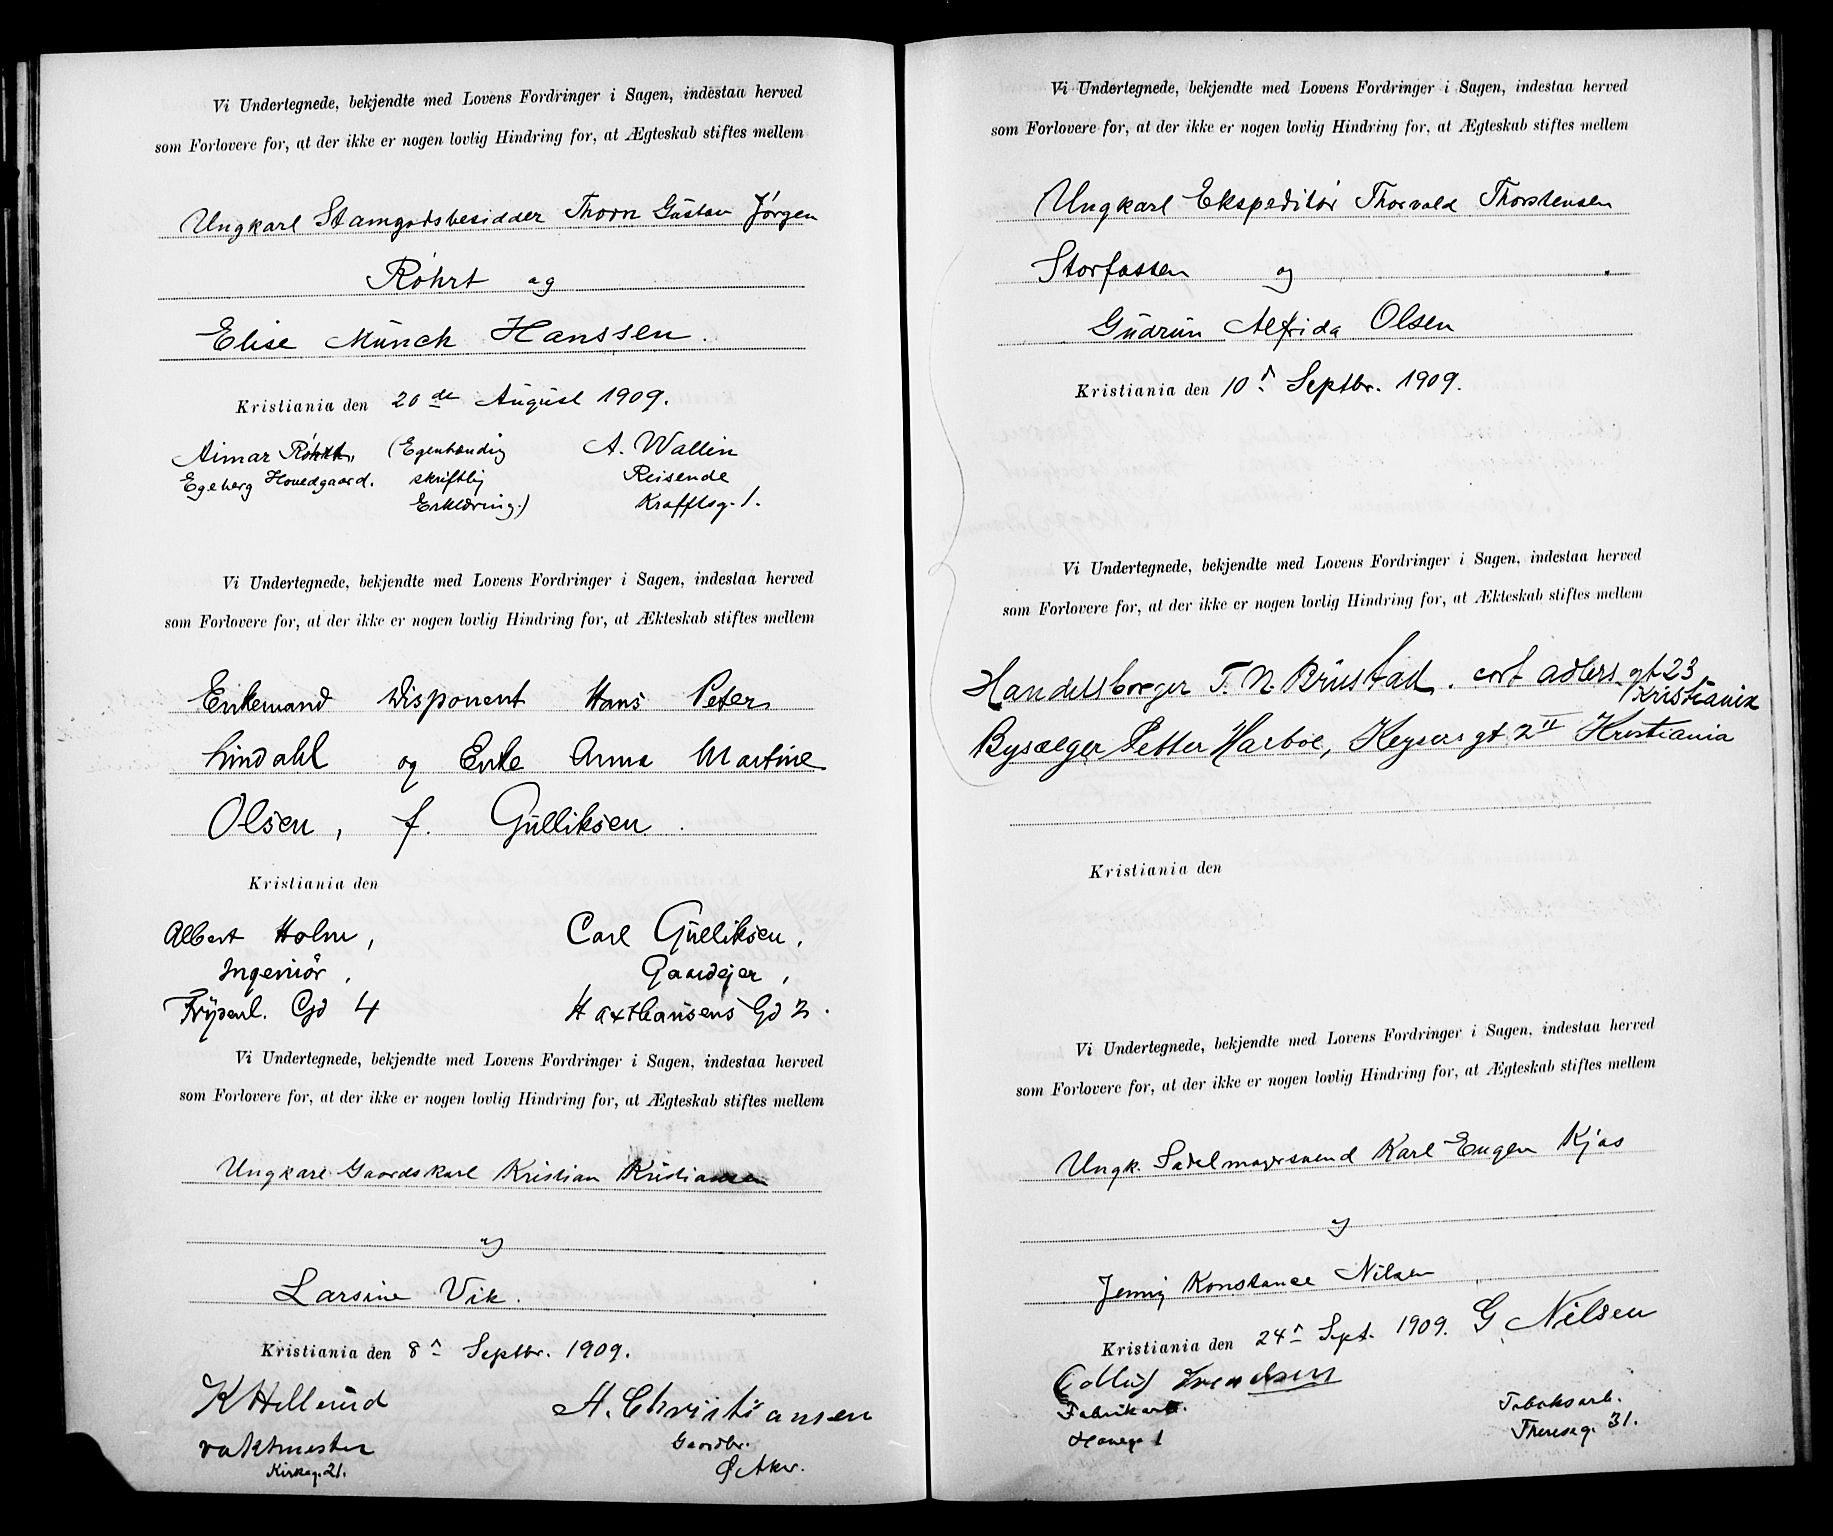 Vi Undertegnede, bekjendte med Lovens Fordringer i Sagen, indestaa herved
som Forlovere for, at der ikke er nogen lovlig Hindring for, at Ægteskab stiftes mellem
Ungkarl Stamgodsbesidder Thorn Gustav Jørgen
Röhrt og
Elise Münch Hanssen.
Kristiania den 20de August 1909.
Aimar Röhrt, (Egenhændig A. Wallin
Egeberg Hovedgaard. skriftlig Reisende
Erklæring.) Krafftsg. 1.
Vi Undertegnede, bekjendte med Lovens Fordringer i Sagen, indestaa herved
som Forlovere for, at der ikke er nogen lovlig Hindring for, at Ækteskab stiftes mellem
Enkemand Disponent Hans Peter
Lindahl og Enke Anna Martine
Olsen, f. Gulliksen.
Kristiania den
Albert Holm, Carl Gulliksen,
Ingeniør, Gaardejer,
Frydenl. Gd 4 Haxthausens Gd 2.
Vi Undertegnede, bekjendte med Lovens Fordringer i Sagen, indestaa herved
som Forlovere for, at der ikke er nogen lovlig Hindring for, at Ægteskab stiftes mellem
Ungkarl Gaardskarl Kristian Kristiansen
og
Larsine Vik.
Kristiania den 8. Septbr. 1909.
K Hellerud A. Christiansen
vaktmester Gaardbr.
Kirkeg. 21. Ø Aker.
Vi Undertegnede, bekjendte med Lovens Fordringer i Sagen, indestaa herved
som Forlovere for, at der ikke er nogen lovlig Hindring for, at Ægteskab stiftes mellem
Ungkarl Ekspeditør Thorvald Thorstensen
Storfossen og
Gudrun Alfrida Olsen
Kristiania den 10. Septbr. 1909.
Vi Undertegnede, bekjendte med Lovens Fordringer i Sagen, indestaa herved
som Forlovere for, at der ikke er nogen lovlig Hindring for, at Ækteskab stiftes mellem
Handelsborger T. N. Brustad. cort adlers gt 23
Kristiania
Bysælger Petter Harboe, Keysers gt 2 II Kristiania
Kristiania den
Vi Undertegnede, bekjendte med Lovens Fordringer i Sagen, indestaa herved
som Forlovere for, at der ikke er nogen lovlig Hindring for, at Ægteskab stiftes mellem
Ungk. Sadelmagersvend Karl Eugen Kjos
og
Jenny Konstance Nilsen
Kristiania den 24. Sept. 1909. G. Nilsen
Svendsen
Fabrikarb. Tobaksarb.
Theresesg. 31.